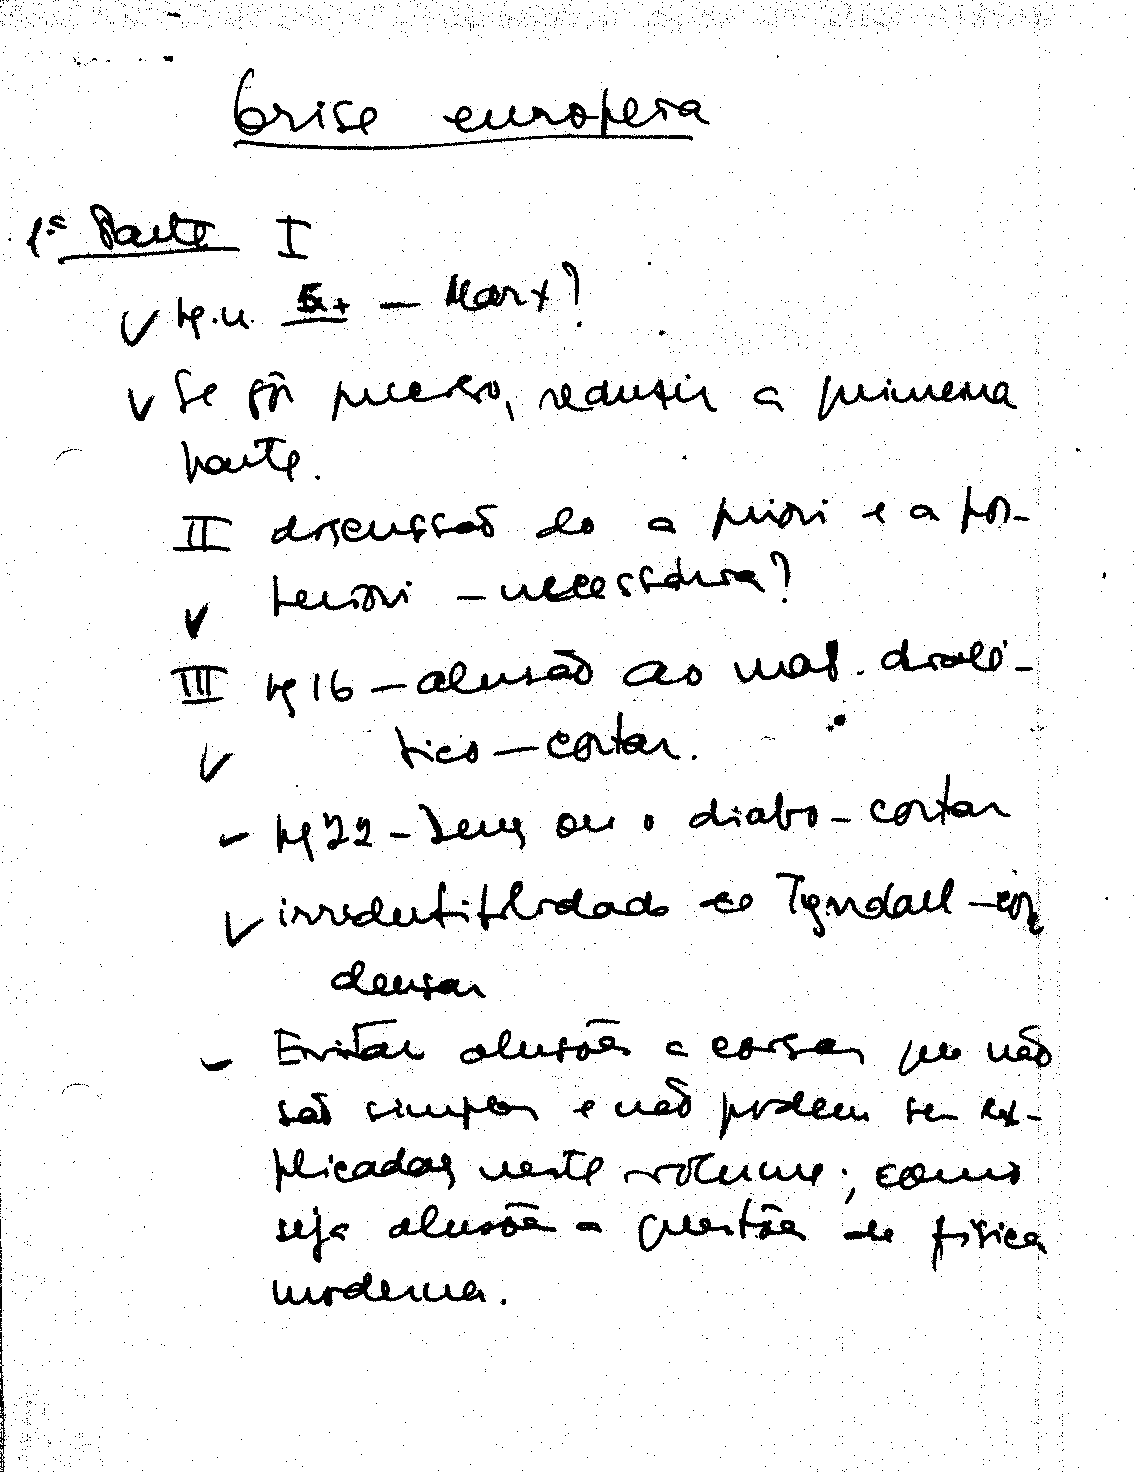 Crise europeia
1ª Parte I
✓ pg. — Marx?
✓ Se fôr preciso, reduzir a primeira
parte.
II discussão do a priori e a pos-
✓ teriori – necessária?
III pg 16 – alusão ao mat. dialé-
✓ tico – cortar.
– pg 22 – Deus ou o diabo – cortar
✓ irredutibilidade de Tyndall – con
densar
– Evitar alusões a coisas que não
são simples e não podem ser ex-
plicadas neste volume; como
seja alusões a questões de física
moderna.